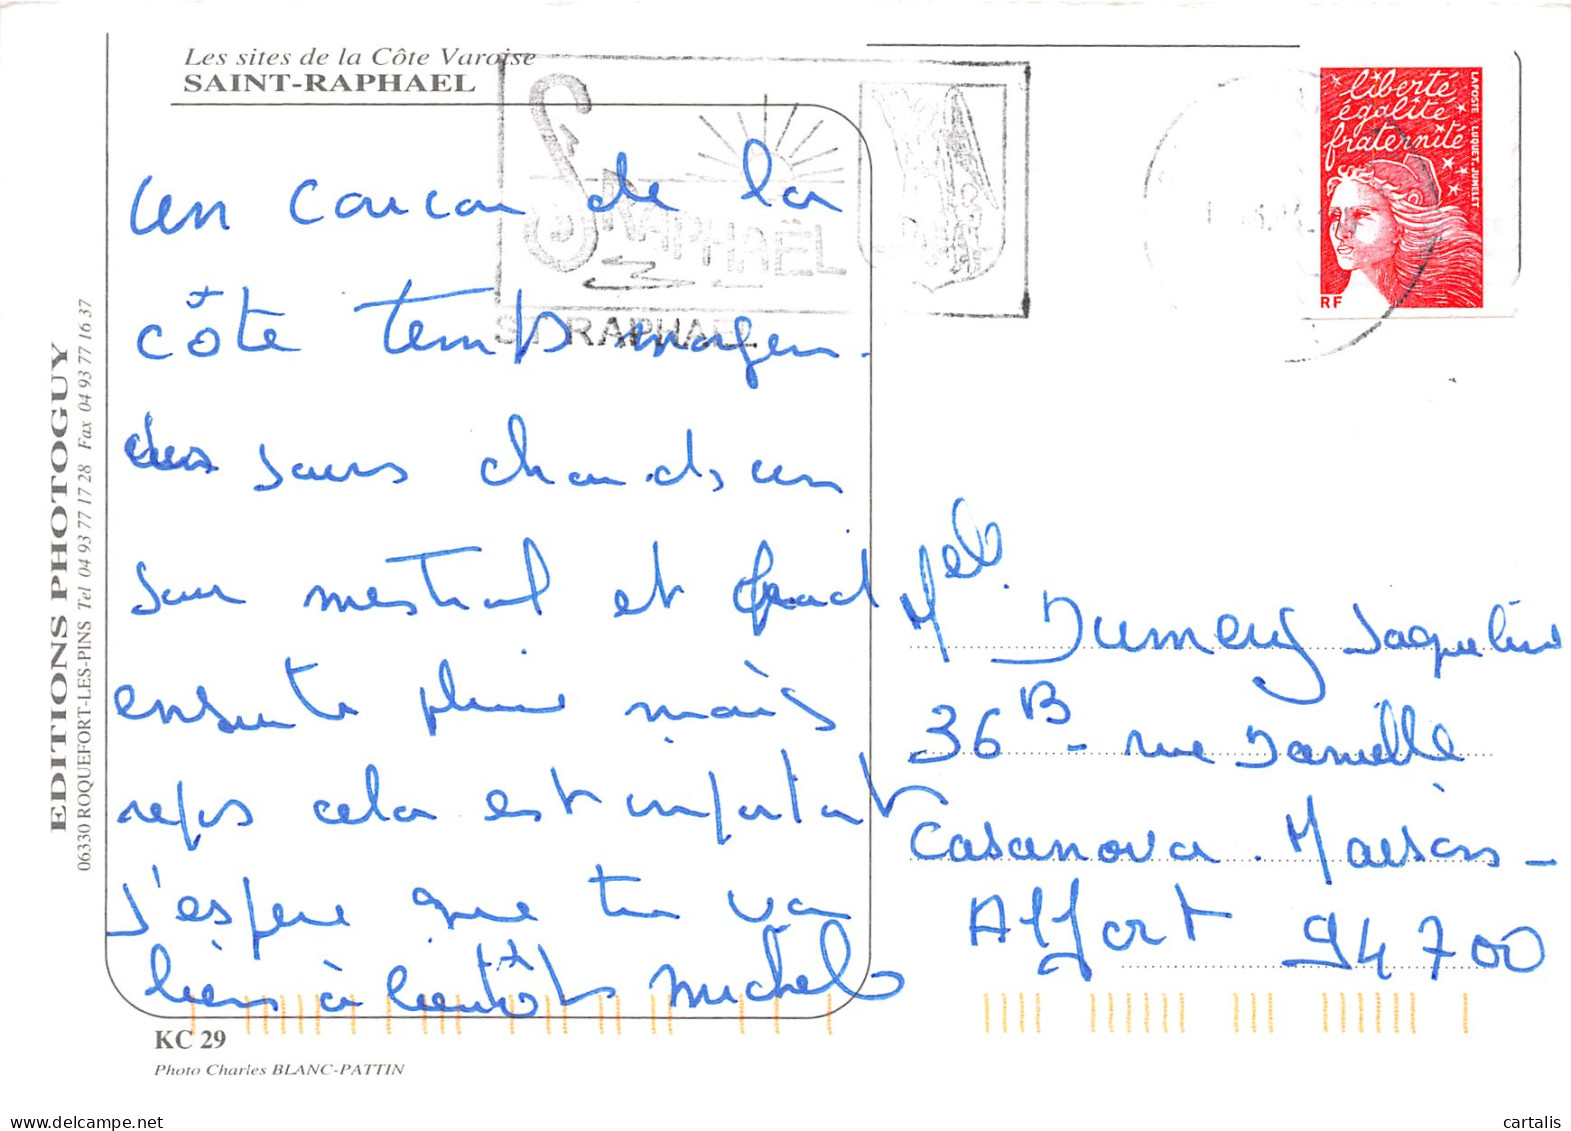 Les sites de la Côte Varoise
SAINT-RAPHAEL
ST RAPHAËL
ST RAPHAEL
liberté
égalité
fraternité
LA POSTE LUQUET.JUMELET
RF
EDITIONS PHOTOGUY
06330 ROQUEFORT-LES-PINS Tel 04 93 77 17 28 Fax 04 93 77 16 37
un coucou de la
côte temps moyen
jours chauds un
jour mestral et froid
ensuite pluie mais
repos cela est important
j'espere que tu va
bien à bientôt Michel
Mel. Dumeny Jaqueline
36 B - rue Danielle
Casanova. Maisons-
Alfort 94700
KC 29
Photo Charles BLANC-PATTIN
cartalis